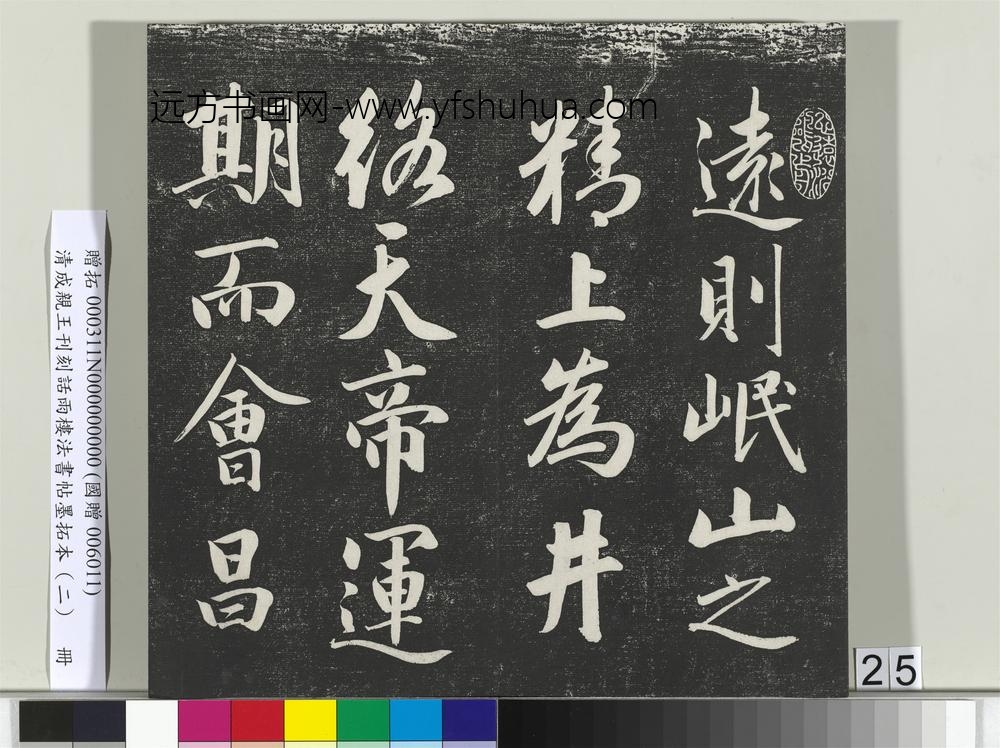 遠則岷山之
精上為井
絡天帝運
期而會昌
远方书画网-www.yfshuhua.com
贈拓 000311N000000000 (國贈 006011)
清成親王刊刻話雨樓法書帖墨拓本（二） 冊
25